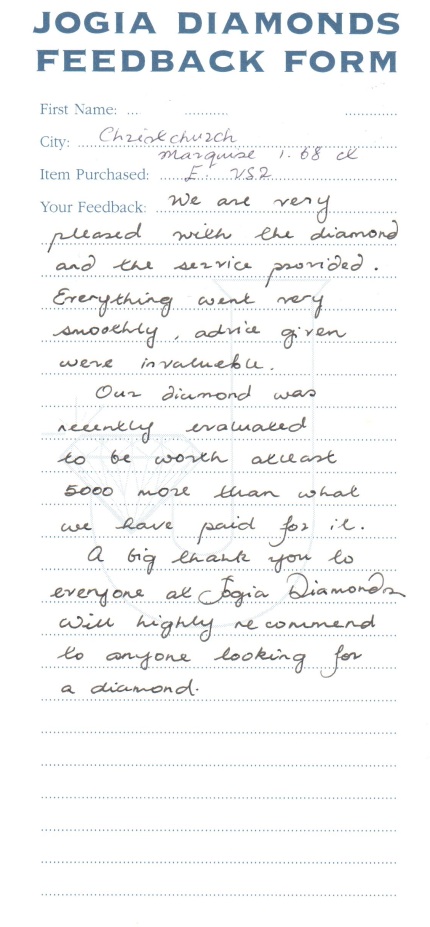 JOGIA DIAMONDS
FEEDBACK FORM
First Name:
City: Christchurch
Marquise 1.68 ct
Item Purchased: E. VS2
Your Feedback: We are very
pleased with the diamond
and the service provided.
Everything went very
smoothly, advice given
were invaluable.
Our diamond was
recently evaluated
to be worth atleast
5000 more than what
we have paid for it.
A big thank you to
everyone at Jogia Diamonds
will highly recommend
to anyone looking for
a diamond.